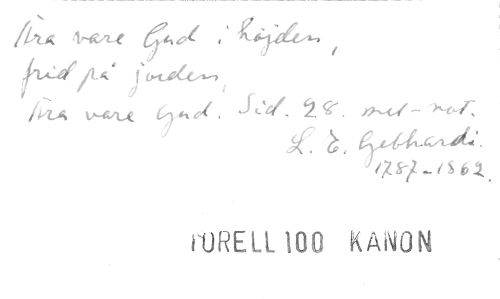 Ära vare Gud i höjden,
frid på jorden,
Ära vare Gud. Sid. 28. mel-not.
L. E. Gebhardi.
1787-1862.
TORELL 100 KANON